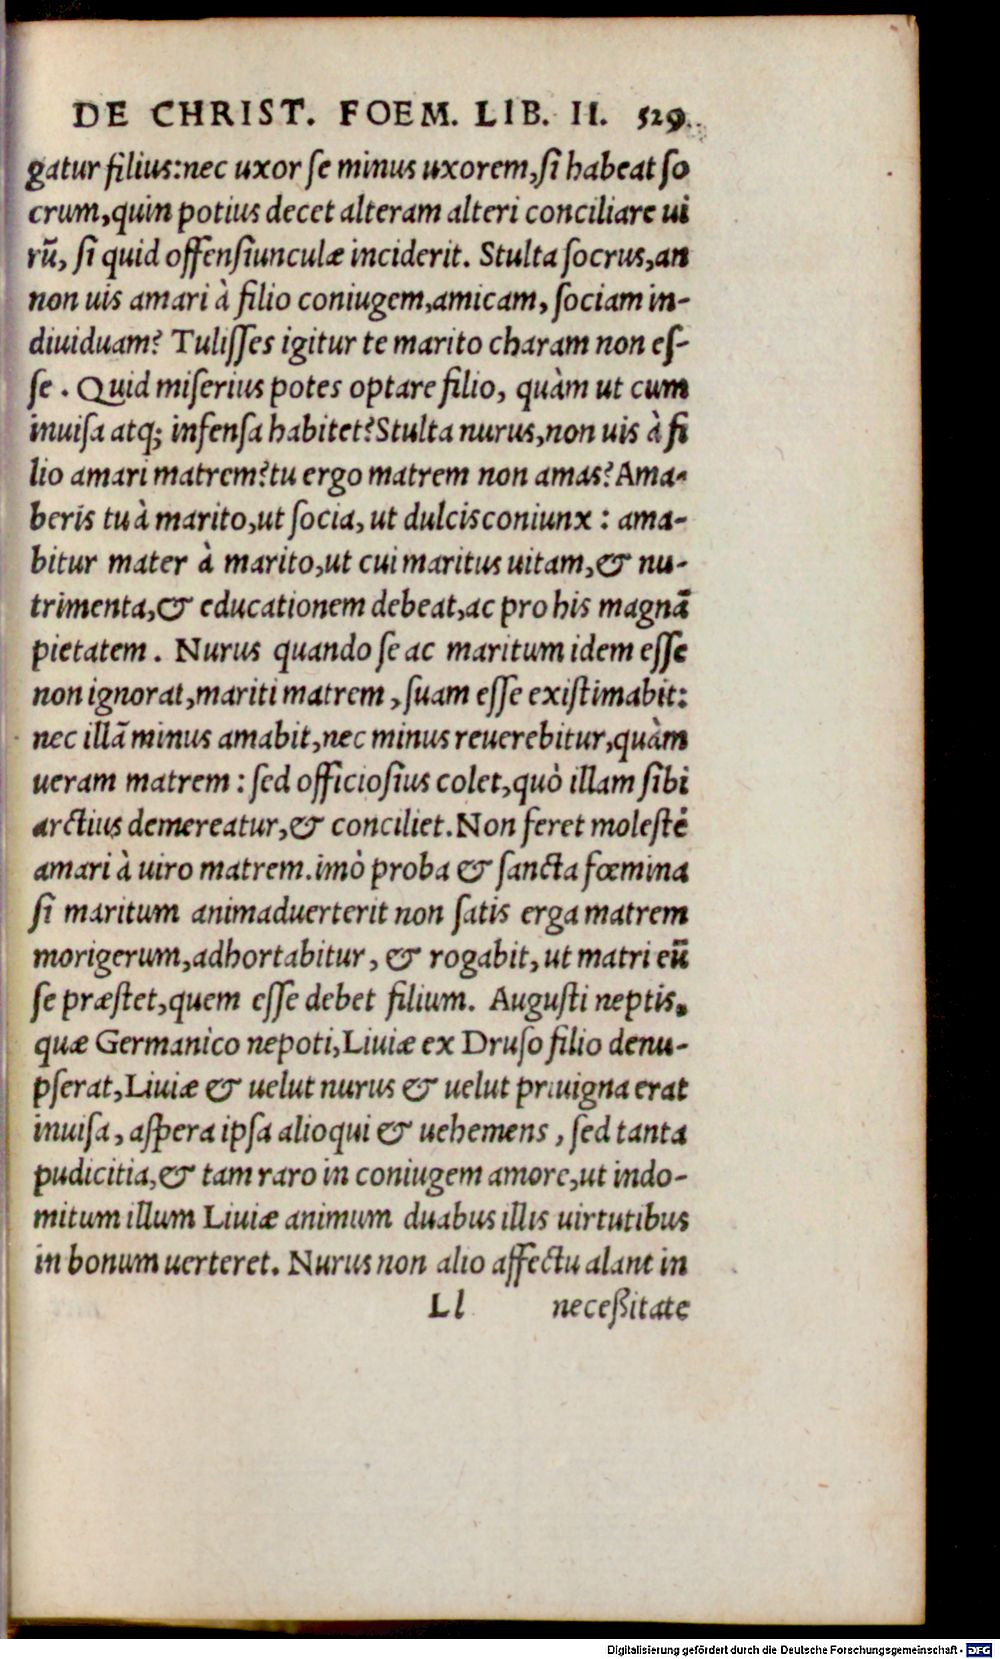 DE CHRIST. FOEM. LIB. II. 529.
gatur filius: nec uxor se minus uxorem, si habeat so
crum, quin potius decet alteram alteri conciliare ui
rū, si quid offensiunculæ inciderit. Stulta socrus, an
non uis amari à filio coniugem, amicam, sociam in-
diuiduam? Tulisses igitur te marito charam non es-
se. Quid miserius potes optare filio, quàm ut cum
inuisa atq; infensa habitet? Stulta nurus, non uis à fi
lio amari matrem? tu ergo matrem non amas? Ama-
beris tu à marito, ut socia, ut dulcis coniunx: ama-
bitur mater à marito, ut cui maritus uitam, & nu-
trimenta, & educationem debeat, ac pro his magnā
pietatem. Nurus quando se ac maritum idem esse
non ignorat, mariti matrem, suam esse existimabit:
nec illā minus amabit, nec minus reuerebitur, quàm
ueram matrem: sed officiosius colet, quò illam sibi
arctius demereatur, & conciliet. Non feret molestè
amari à uiro matrem. imò proba & sancta fœmina
si maritum animaduerterit non satis erga matrem
morigerum, adhortabitur, & rogabit, ut matri eū
se præstet, quem esse debet filium. Augusti neptis,
quæ Germanico nepoti, Liuiæ ex Druso filio denu-
pserat, Liuiæ & uelut nurus & uelut priuigna erat
inuisa, aspera ipsa alioqui & uehemens, sed tanta
pudicitia, & tam raro in coniugem amore, ut indo-
mitum illum Liuiæ animum duabus illis uirtutibus
in bonum uerteret. Nurus non alio affectu alant in
Ll necessitate
Digitalisierung gefördert durch die Deutsche Forschungsgemeinschaft - DFG